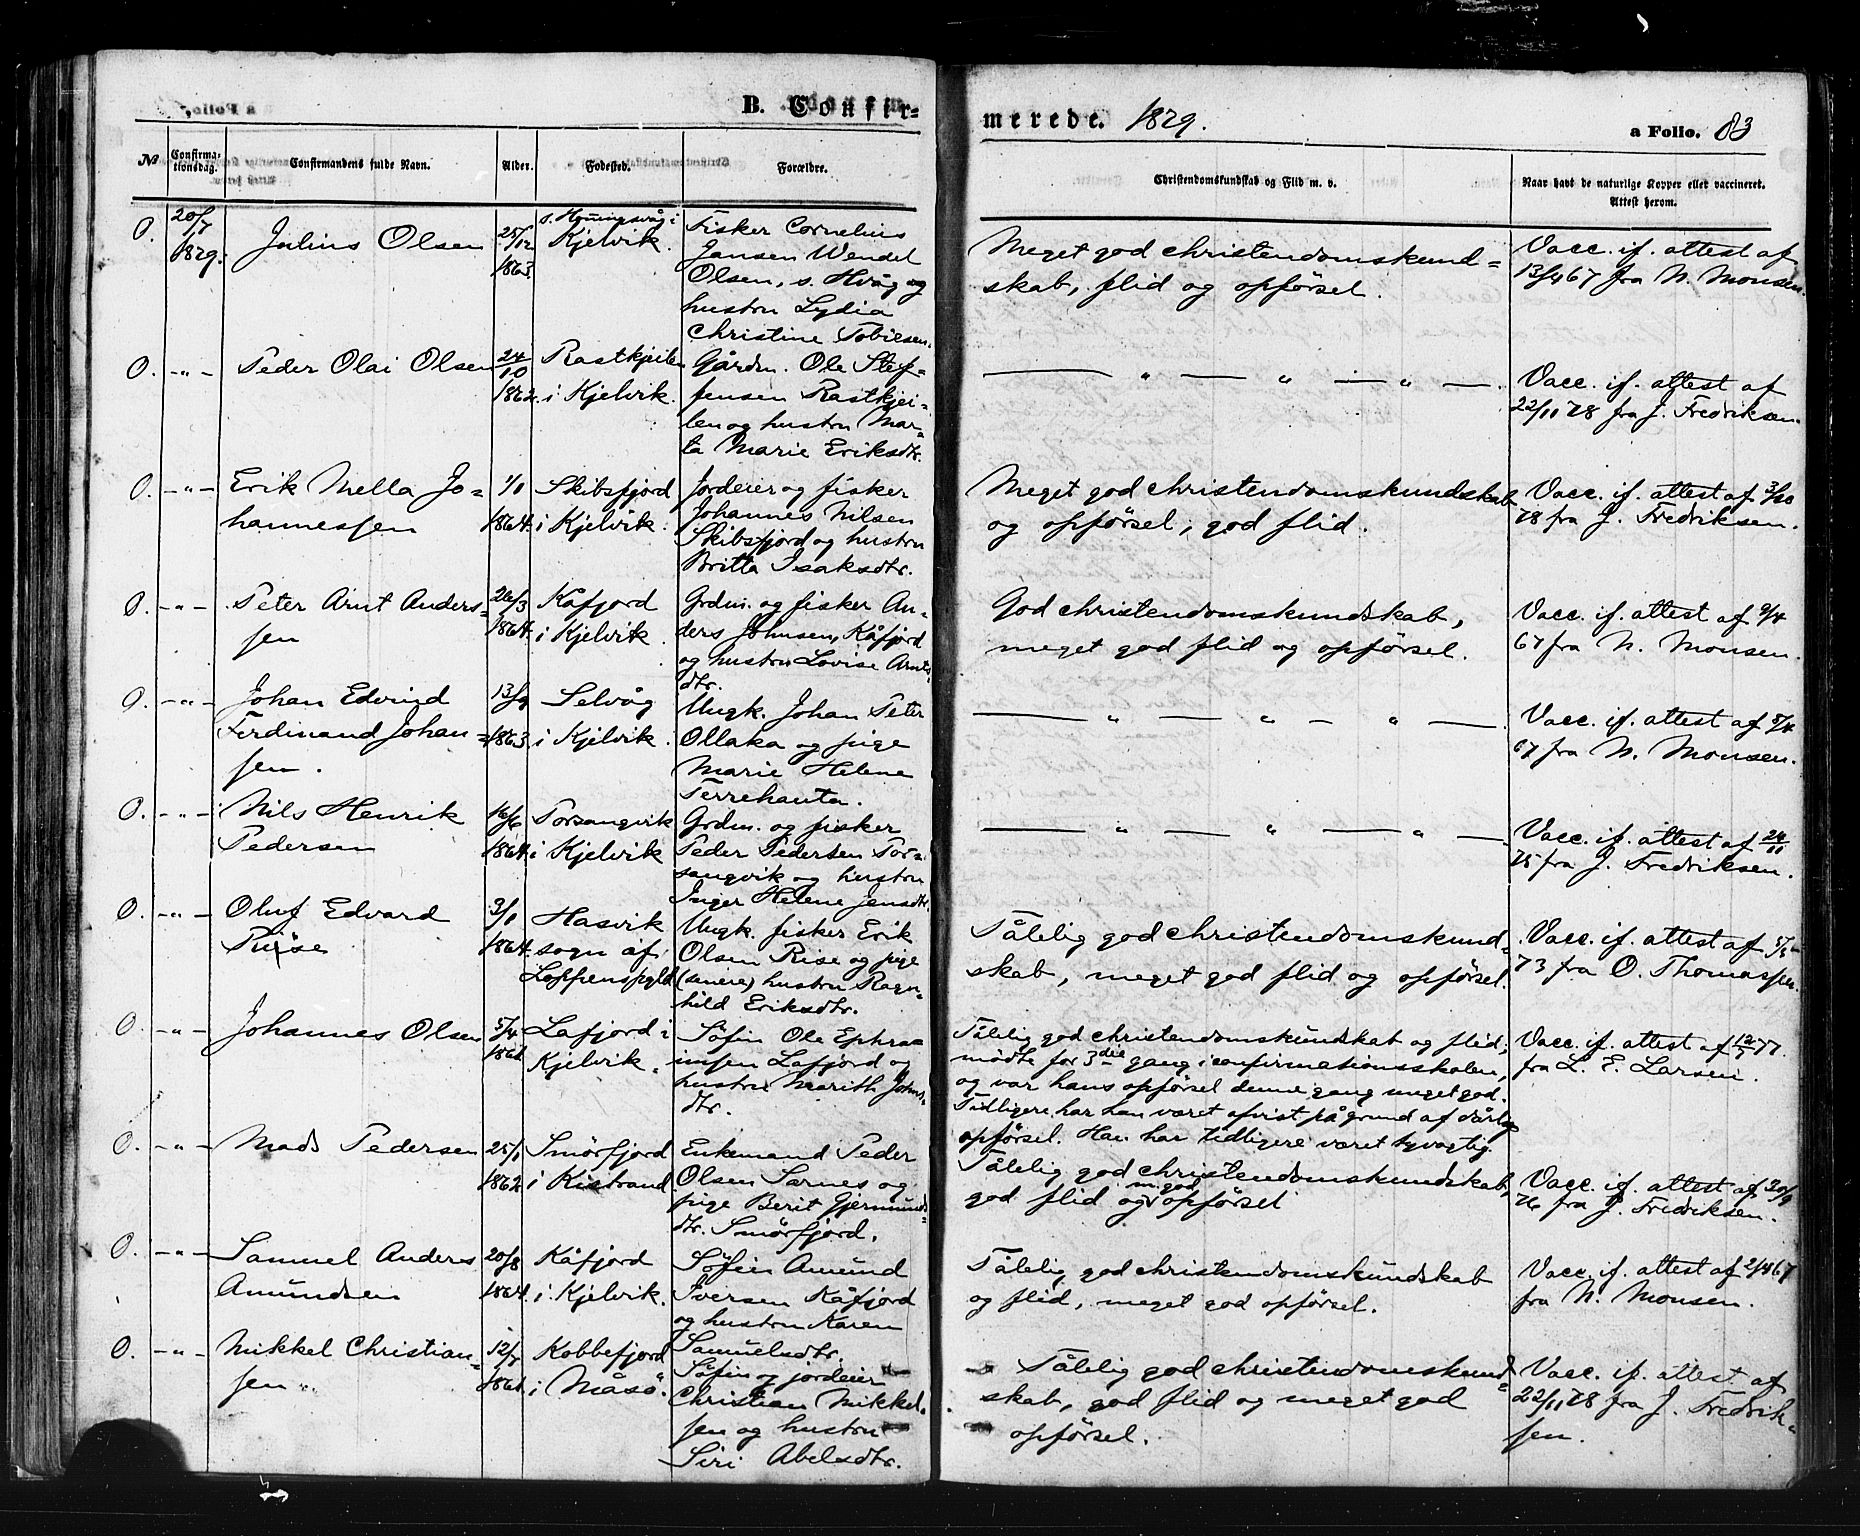 B. Confir-
merede. 1879.
a Folio. 83
№
Confirma-
tionsdag.
Confirmandens fulde Navn.
Alder.
Fødested.
Forældre.
Christendomskundskab og Flid m. v.
Naar havt de naturlige Kopper eller vaccineret.
Attest herom.
O. 20/7 1879.
Julius Olsen
25/12 1863.
s. Honingsvåg i
Kjelvik.
Fisker Cornelius
Jansen Wendel
Olsen, s. Hvåg og
hustru Lydia
Christine Tobiesen.
Meget god christendomskund=
skab, flid og opförsel.
Vacc. if. attest af
13/4 67 fra N. Monsen.
O. -"-
Peder Olai Olsen
24/10 1862.
Rastkjeilen
i Kjelvik.
Gårdm. Ole Stef=
fensen Rastkjei-
len og hustru Mar=
ta Marie Eriksdtr.
— " — " — " —.
Vacc. if. attest af
22/11 78 fra J. Fredriksen.
O. -"-
Erik Mella Jo=
hannessen
1/1 1864.
Skibsfjord
i Kjelvik.
Jordeier og fisker
Johannes Nilsen
Skibsfjord og hustru
Britta Isaksdtr.
Meget god christendomskundskab
og opförsel, god flid.
Vacc. if. attest af 3/10
78 fra J. Fredriksen.
O. -"-
Peter Arnt Anders=
sen
26/3 1864.
Kåfjord
i Kjelvik.
Grdm. og fisker An=
ders Johnsen, Kåfjord
og hustru Lovise Arnts
dtr.
God christendomskundskab,
meget god flid og opförsel.
Vacc. if. attest af 9/4
67 fra N. Monsen.
O. -"-
Johan Edvind
Ferdinand Johan=
sen.
13/9 1863.
Selvåg
i Kjelvik.
Ungk. Johan Peter
Ollaka og pige
Marie Helene
Terrehauta.
— " — " — " —
Vacc. if. attest af 5/4
67 fra N. Monsen.
O. -"-
Nils Henrik
Pedersen
16/6 1864.
Porsangvik
i Kjelvik
Grdm. og fisker
Peder Pedersen Por=
sangvik og hustru
Inger Helene Jensdtr.
— " — " — " —
Vacc. if. attest af 24/11
75 fra J. Fredriksen.
O. -"-
Oluf Edvard
Riise
3/1 1864.
Hasvik
sogn af
Loppens pgld
Ungk. fisker Erik
Olsen Rise og pige
(senere) hustru Ragn=
hild Eriksdtr.
Tålelig god christendomskund=
skab, meget god flid og opförsel.
Vacc. if. attest af 5/5
73 fra O. Thomassen.
O. -"-
Johannes Olsen
5/4 1861
Lafjord i
Kjelvik.
Söfin Ole Ephra=
imsen Lafjord og
hustru Marith Johns=
dtr.
Tålelig god christendomskundskab og flid,
mödte for 3die gang i confirmationsskolen,
og var hans opförsel denne gang meget god.
Tidligere har han været afvist på grund af dårlig
opförsel. Han har tidligere været tyvagtig.
Vacc. if. attest af 12/7 77
fra L. E. Larsen.
O. -"-
Mads Pedersen
25/1 1862
Smörfjord
i Kistrand
Enkemand Peder
Olsen Sarnes og
pige Berit Gjermunds=
dtr. Smörfjord.
Tålelig god christendomskundskab,
god flid og m. god opförsel
Vacc. if. attest af 20/9
76 fra J. Fredriksen.
O. -"-
Samuel Anders
Amundsen
20/8 1864.
Kåfjord
i Kjelvik.
Söfin Amund
Iversen Kåfjord
og hustru Karen
Samuelsdtr.
Tålelig god christendomskundskab
og flid, meget god opförsel.
Vacc. if. attest af 2/4 67
fra N. Monsen.
O. -"-
Mikkel Christian=
sen
Kobbefjord
i Måsö.
Söfin og jordeier
Christian Mikkel=
sen og hustru
Siri Abelsdtr.
Tålelig god christendomskund=
skab, god flid og meget god
opförsel.
Vacc. if. attest af
22/11 78 fra J. Fredrik=
sen.